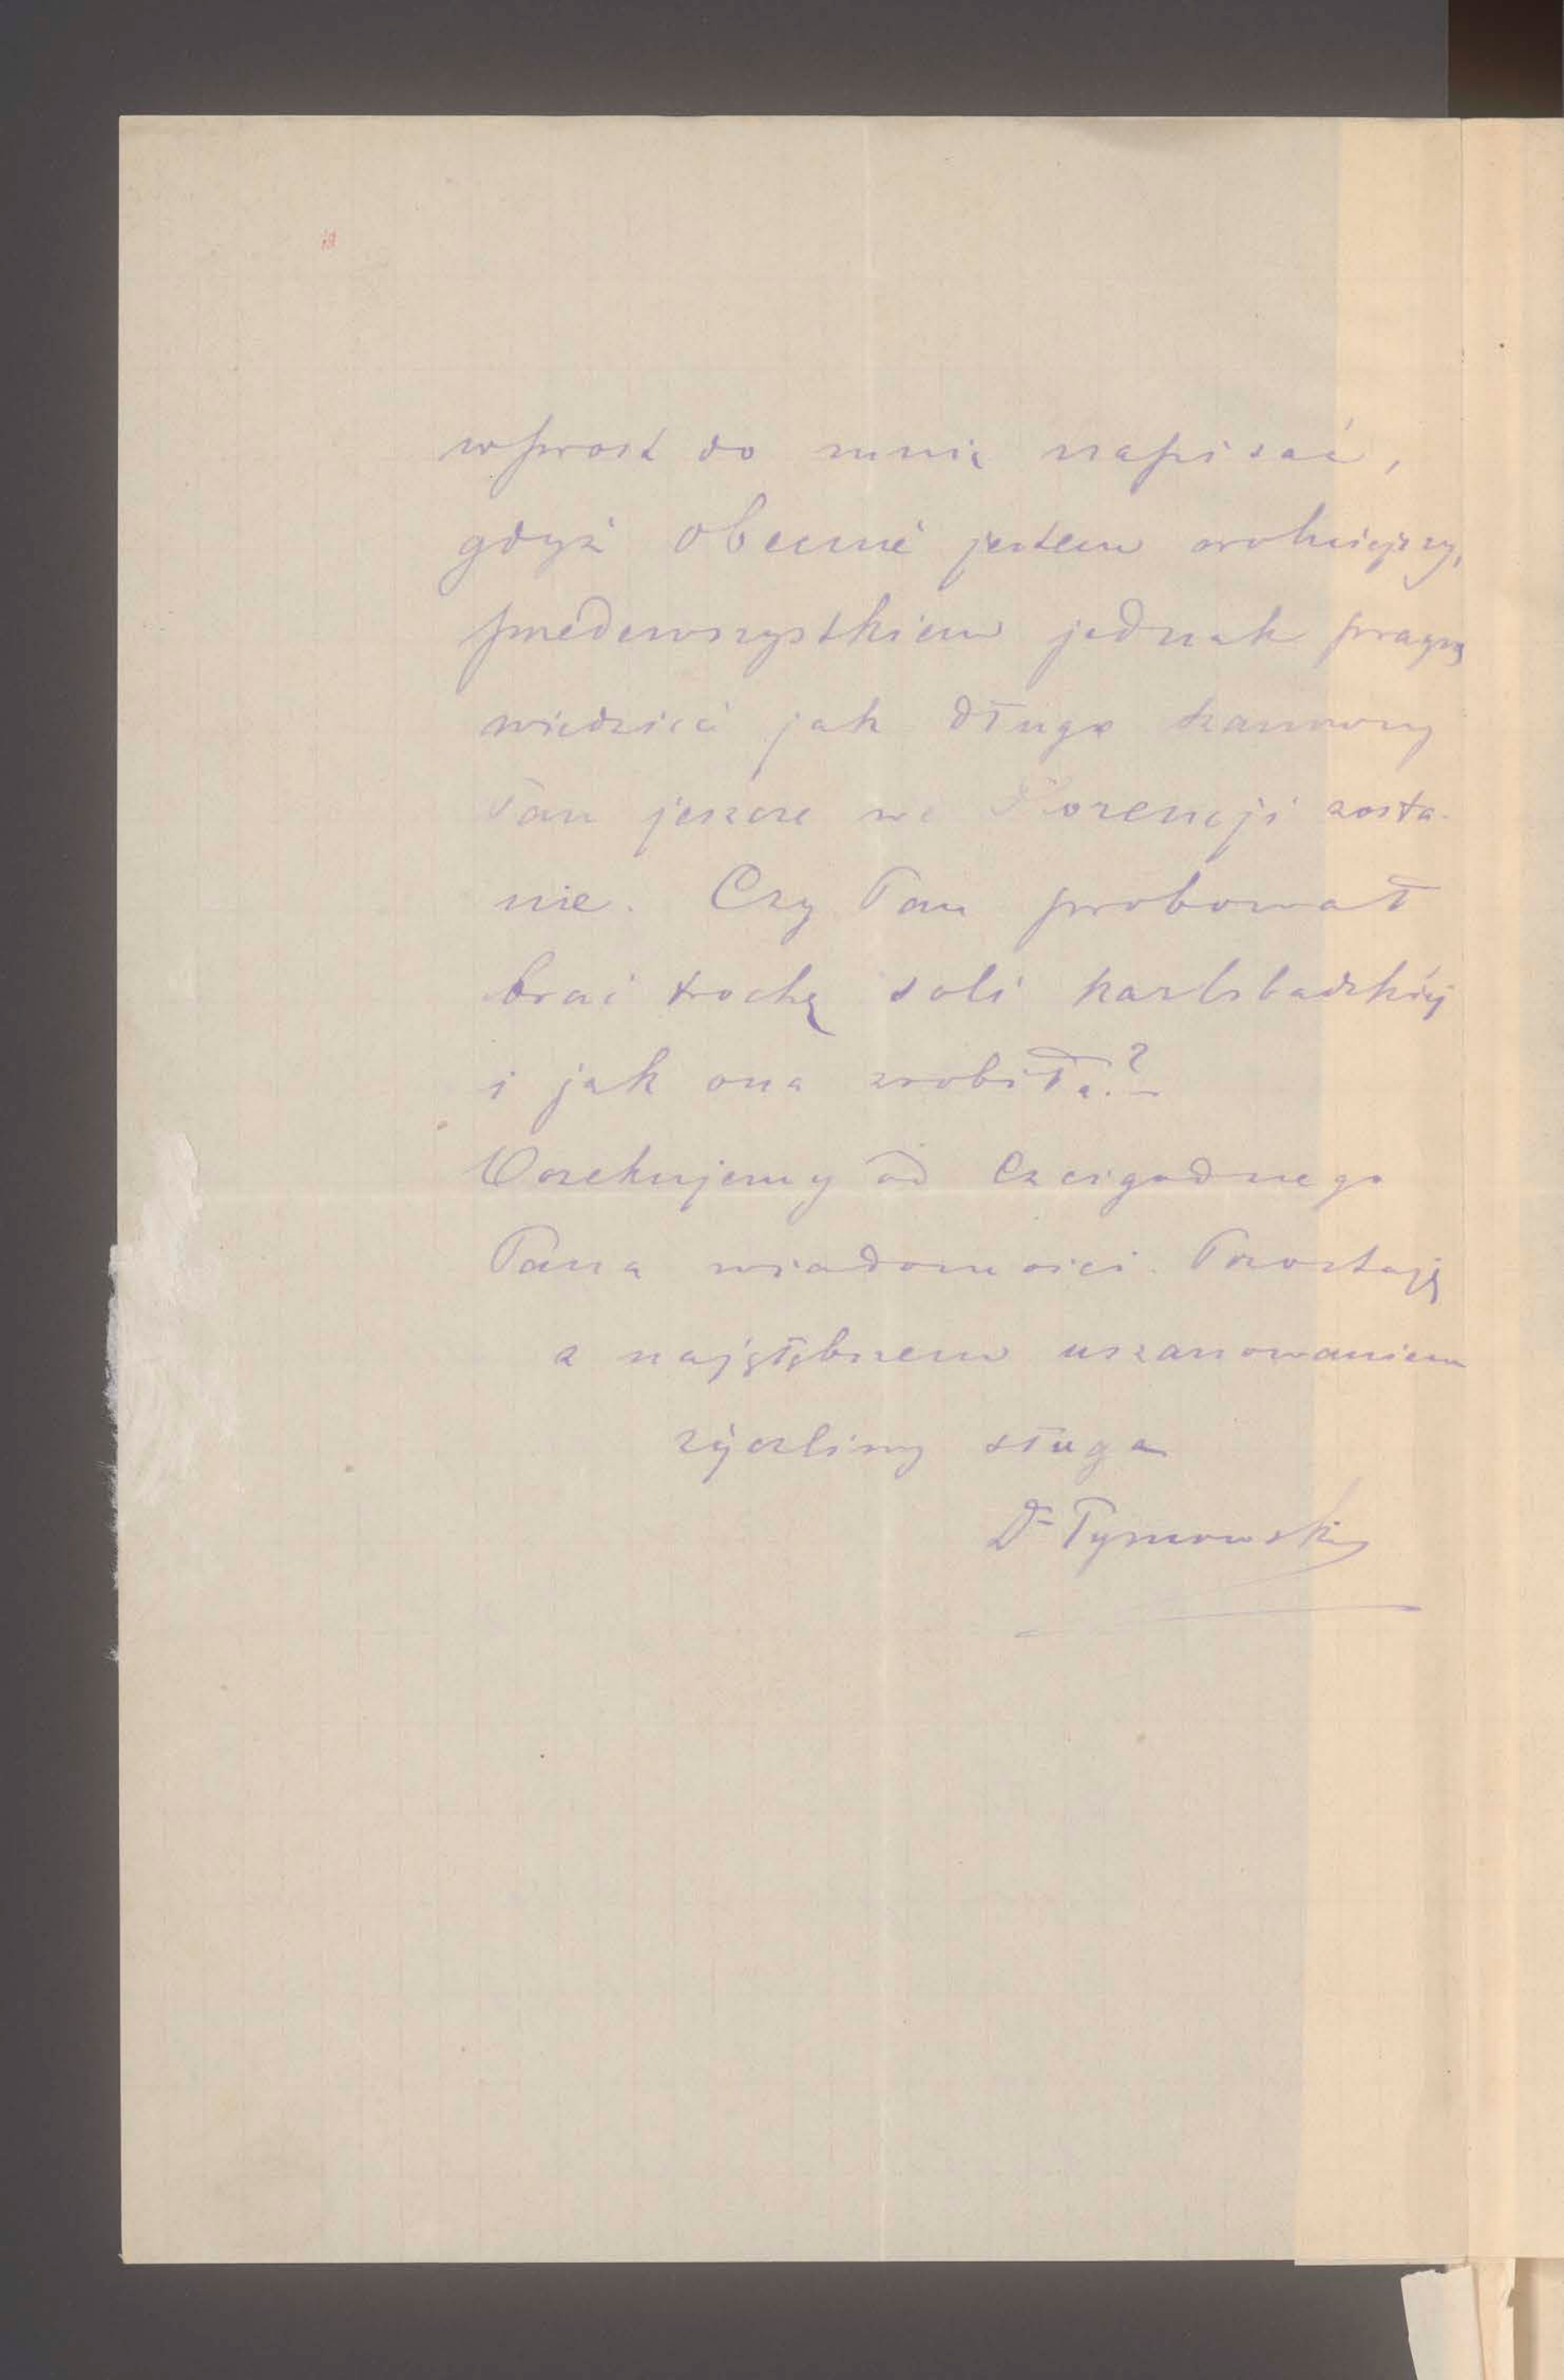 wprost do mnie napisać,
gdyż obecnie jestem wolniejszy,
przedewszystkiem jednak pragnę
wiedzieć jak długo kochany
Pan jeszcze we Florencji zosta-
nie. Czy Pan probował
brać trochę soli karlsbadzkiéj
i jak ona zrobiła? –
Oczekujemy od Czcigodnego
Pana wiadomości. Pozostaję
z najgłębszem uszanowaniem
życzliwy sługa
Dr Tymowski